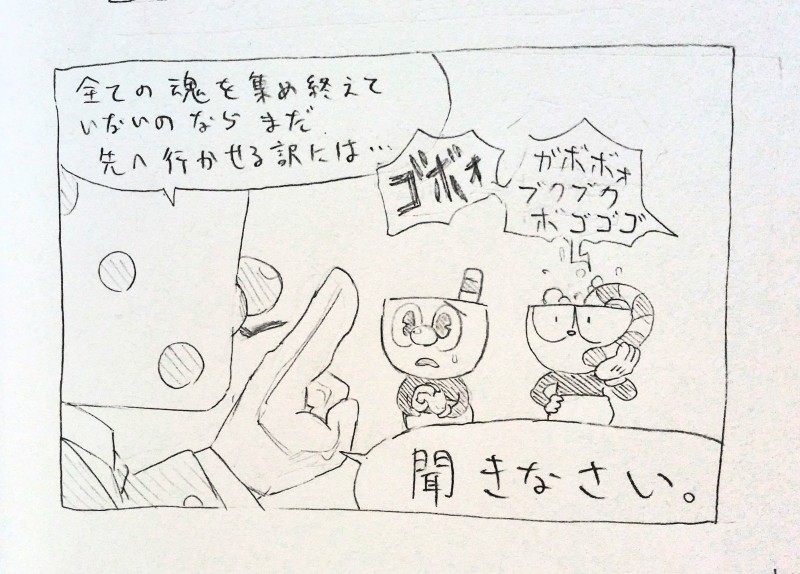 全ての魂を集め終えて
いないのならまだ
先へ行かせる訳には…
ゴボォ
ガボボォ
ブクブク
ボゴゴゴ
聞きなさい。